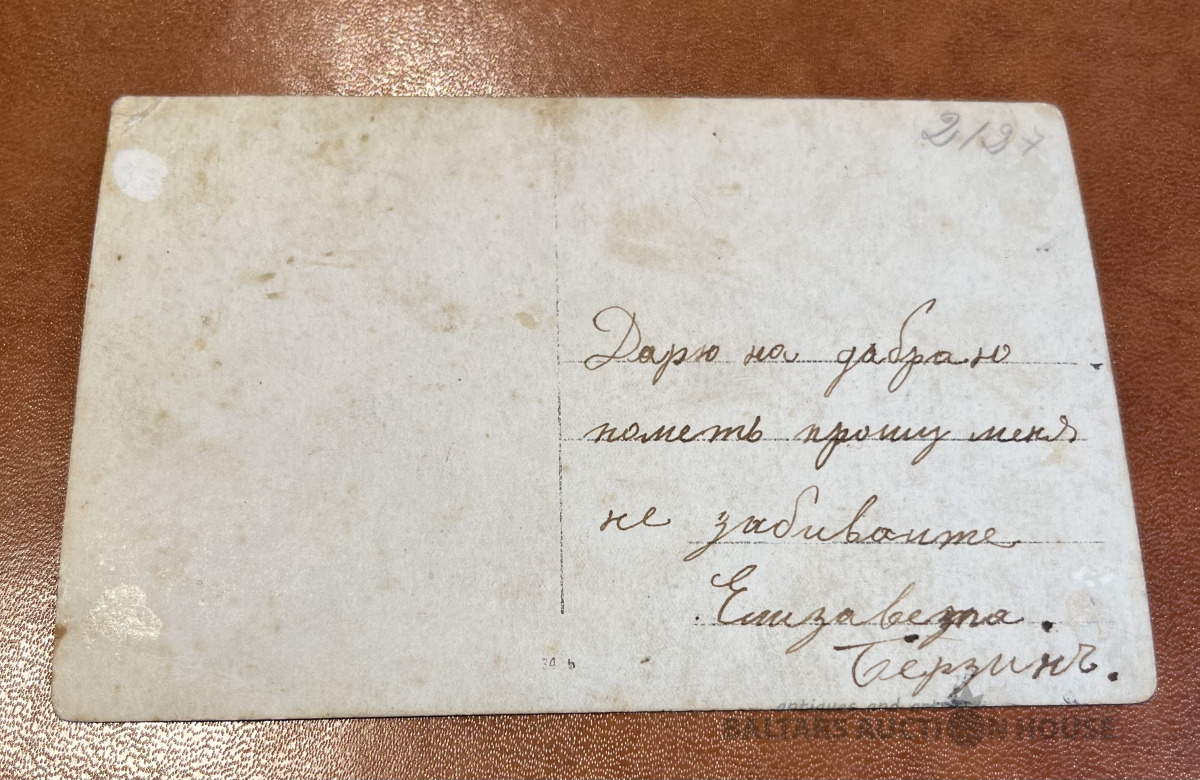 2127
Дарю на дабраю
пометь прошу меня
не забиваите
Елизавета.
Берзинъ.
34 b
antiques and art
BALTARS AUCTION HOUSE